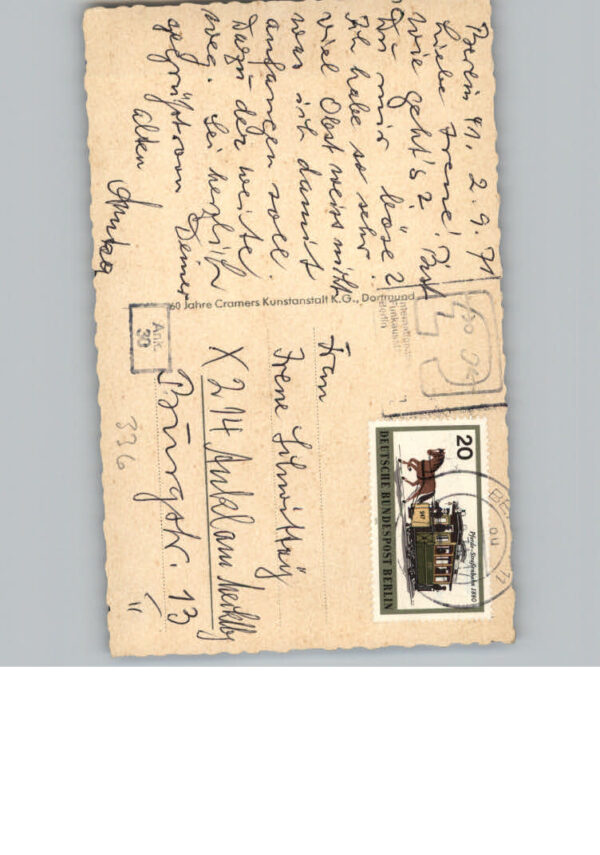 Berlin 41, 2.9.71
Liebe Irene! Bist
Du mir böse?
wie geht's?
Ich habe so sehr
viel Obst weiss nicht
was ich damit
anfangen soll.
Dazu der weite
Weg. Sei herzlich
gegrüßt von Deiner
alten
60 Jahre Cramers Kunstanstalt K.G., Dortmund
20
Pferde-Straßenbahn 1880
DEUTSCHE BUNDESPOST BERLIN
Frau
Irene
X 214 Anklam
Burgstr. 13
II
Ank.
30
336